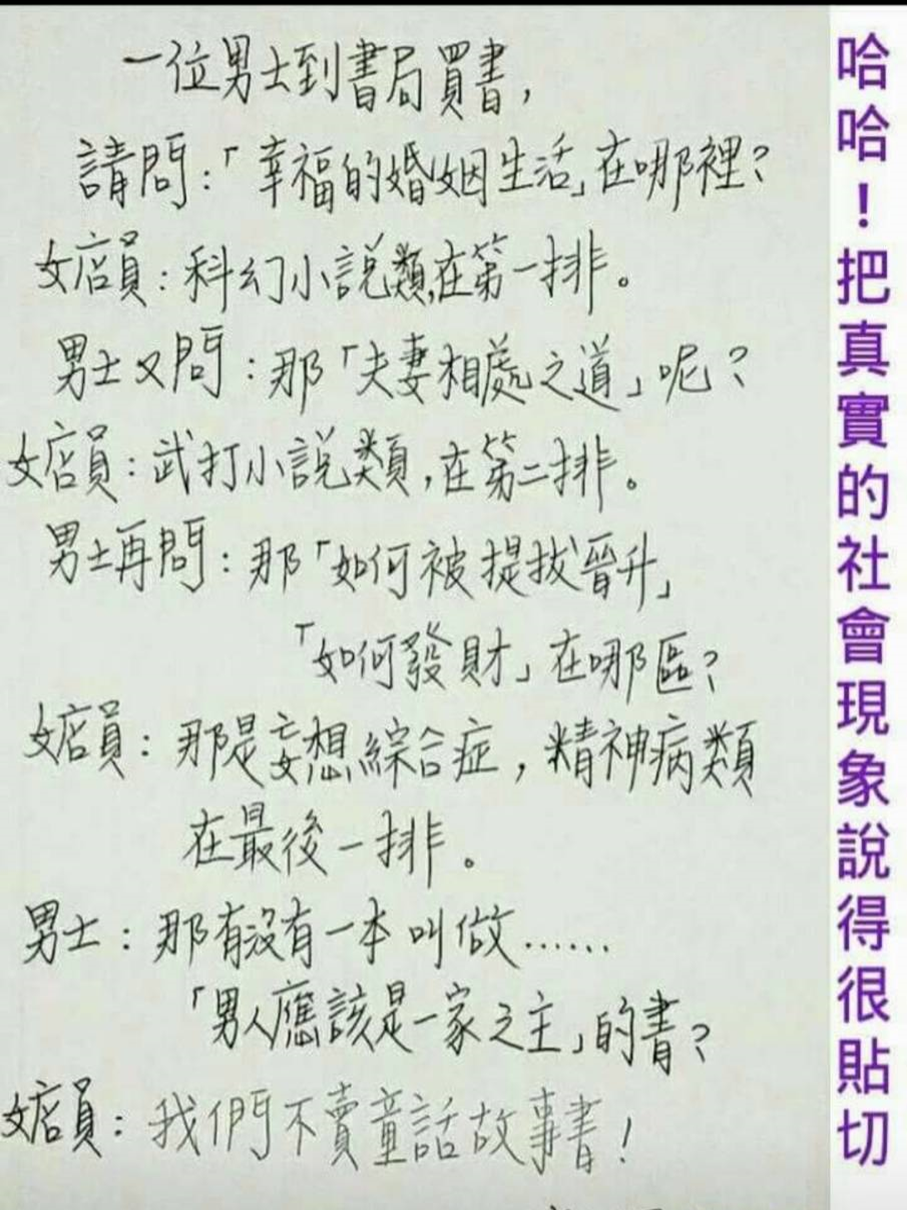 一位男士到書局買書,
請問:「幸福的婚姻生活」在哪裡?
女店員:科幻小說類,在第一排。
男士又問:那「夫妻相處之道」呢?
女店員:武打小說類,在第二排。
男士再問:那「如何被提拔晉升」
「如何發財」在哪區?
女店員:那是妄想綜合症,精神病類
在最後一排。
男士:那有沒有一本叫做……
「男人應該是一家之主」的書?
女店員:我們不賣童話故事書!
哈哈!把真實的社會現象說得很貼切